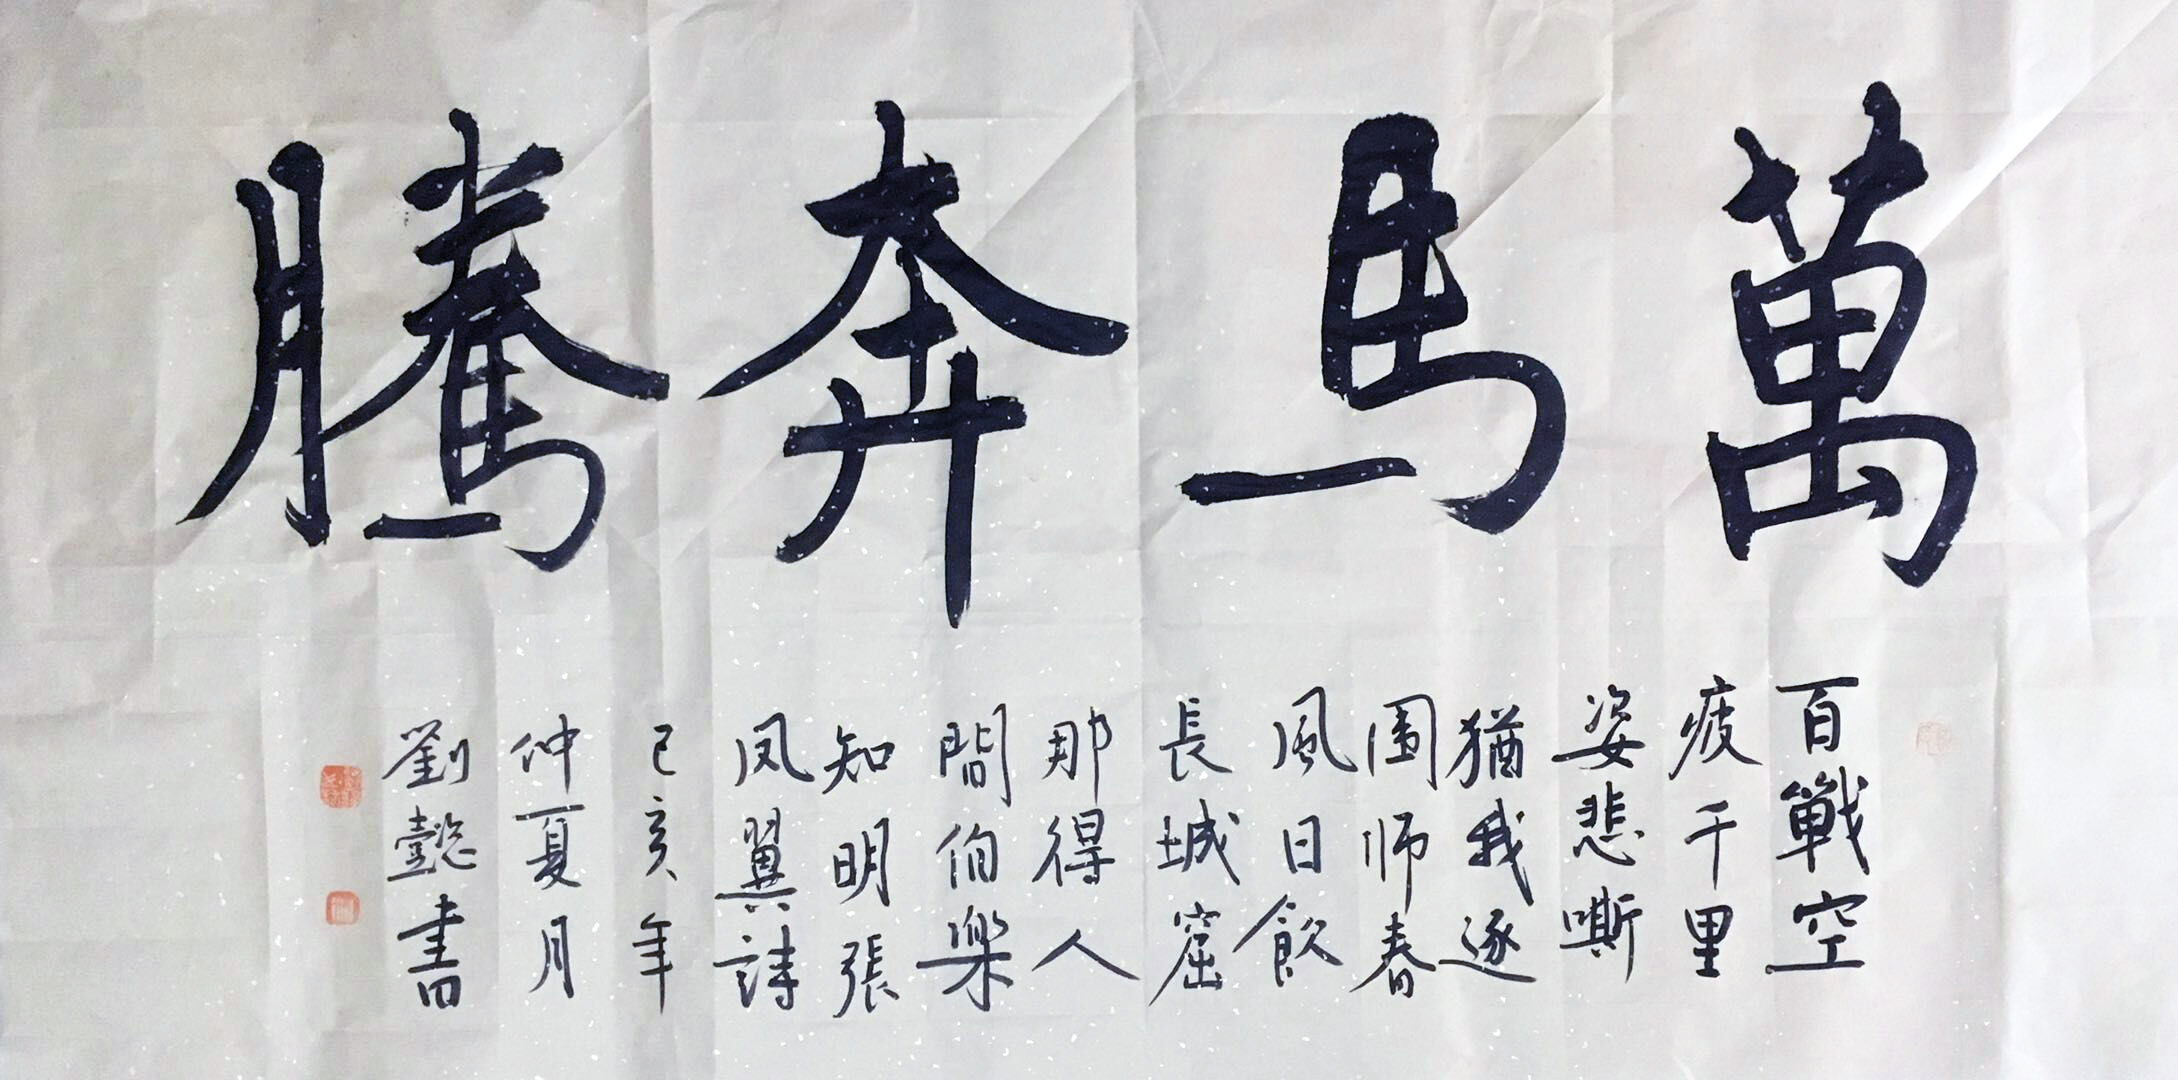 萬馬奔騰
百戰空
疲千里
姿悲嘶
猶我逐
圉师春
風日飲
長城窟
那得人
間伯樂
知明張
凤翼詩
己亥年
仲夏月
劉懿書